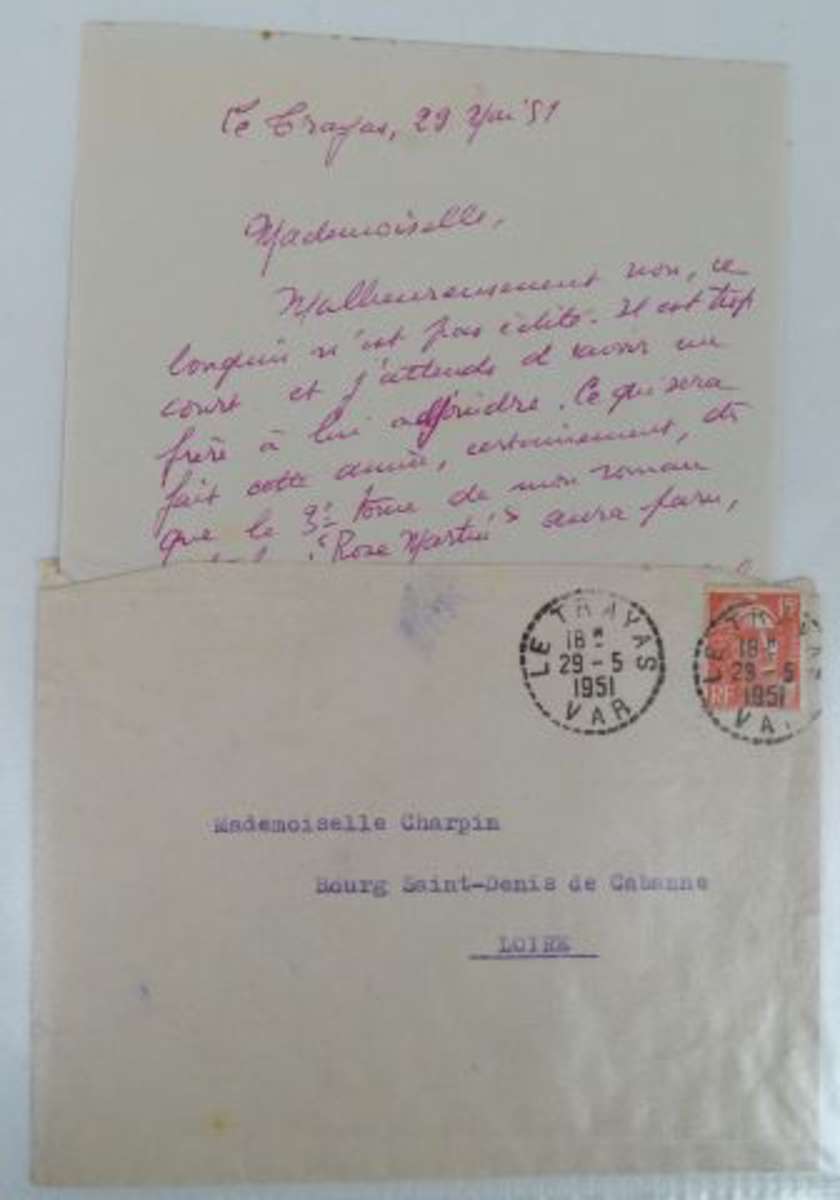 Le Trayas, 29 Mai 51
Mademoiselle,
Malheureusement non, ce
bouquin n'est pas édité. Il est trop
court et j'attends d'avoir un
frère à lui adjoindre. Ce qui sera
fait cette année, certainement, dès
que le 3e tome de mon roman
"Rose Martin" aura paru,
LE TRAYAS
18H
29-5
1951
VAR
LE TRAYAS
18H
29-5
1951
VA
15F
RF
Mademoiselle Charpin
Bourg Saint-Denis de Cabanne
LOIRE